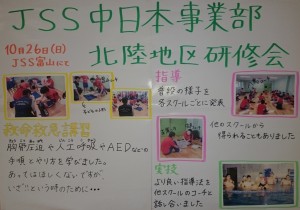 JSS中日本事業部
北陸地区研修会
10月26日(日)
JSS富山にて
指導
普段の様子を
各スクールごとに発表
他のスクールから
得られることもありました。
救命救急講習
胸骨圧迫や人工呼吸やAEDなどの
手順とやり方を学びました。
あってはほしくないですが、
いざ!!という時のために…
実技
より良い指導法を
他スクールのコーチと
話し合いました